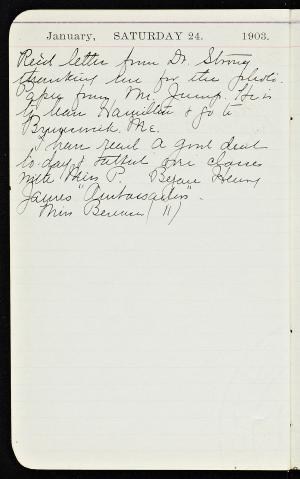 January, SATURDAY 24. 1903.
Rec'd letter from Dr. Strong
thanking me for the photo-
from Mr. Jump. He is
to leave Hamilton & go to
Brunswick. Me.
I have read a good deal
to-day & talked over classes
with Miss P. Began Henry
James' "Ambassadors".
Miss (11)